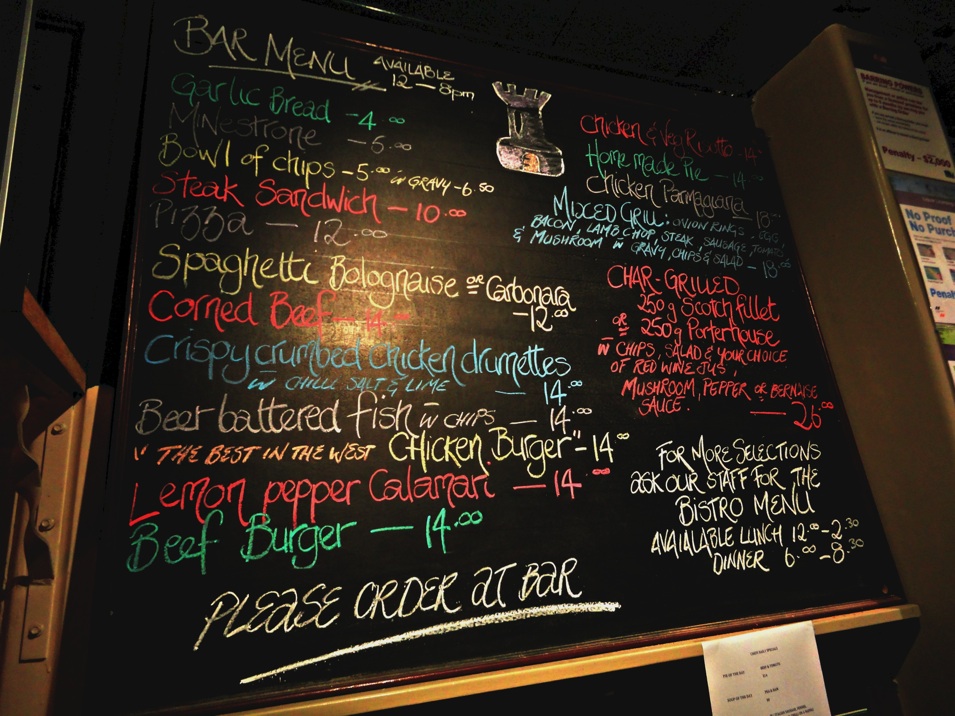 BAR MENU AVAILABLE
12 - 8pm
Garlic Bread - 4.00
Minestrone - 6.00
Bowl of chips - 5.00 w GRAVY - 6.50
Steak Sandwich - 10.00
Pizza - 12.00
Spaghetti Bolognaise or Carbonara
- 12.00
Corned Beef - 14.00
Crispy crumbed chicken drumettes
w CHILLI, SALT & LIME - 14.00
Beer battered fish w CHIPS - 14.00
"THE BEST IN THE WEST CHICKEN Burger" - 14.00
Lemon pepper Calamari - 14.00
Beef Burger - 14.00
PLEASE ORDER AT BAR
Chicken & Veg Risotto - 14.00
Home made Pie - 14.00
Chicken Parmagiana 18.00
MIXED GRILL: ONION RINGS, EGG,
BACON, LAMB CHOP, STEAK, SAUSAGE, TOMATO
& MUSHROOM w GRAVY, CHIPS & SALAD - 18.00
CHAR-GRILLED
250g Scotch fillet
or 250g Porterhouse
w CHIPS, SALAD & YOUR CHOICE
OF RED WINE JUS,
MUSHROOM, PEPPER OR BERNAISE
SAUCE. - 26.00
FOR MORE SELECTIONS
ASK OUR STAFF FOR THE
BISTRO MENU
AVAIALABLE LUNCH 12.00 - 2.30
DINNER 6.00 - 8.30
BARRING POWERS
Penalty - $2,000
No Proof
No Purch
Penal